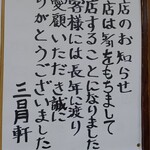 店のお知らせ
店は をもちまして
店することになりました
客様には長年に渡り
愛顧いただき誠に
りがとうございました
三日月軒